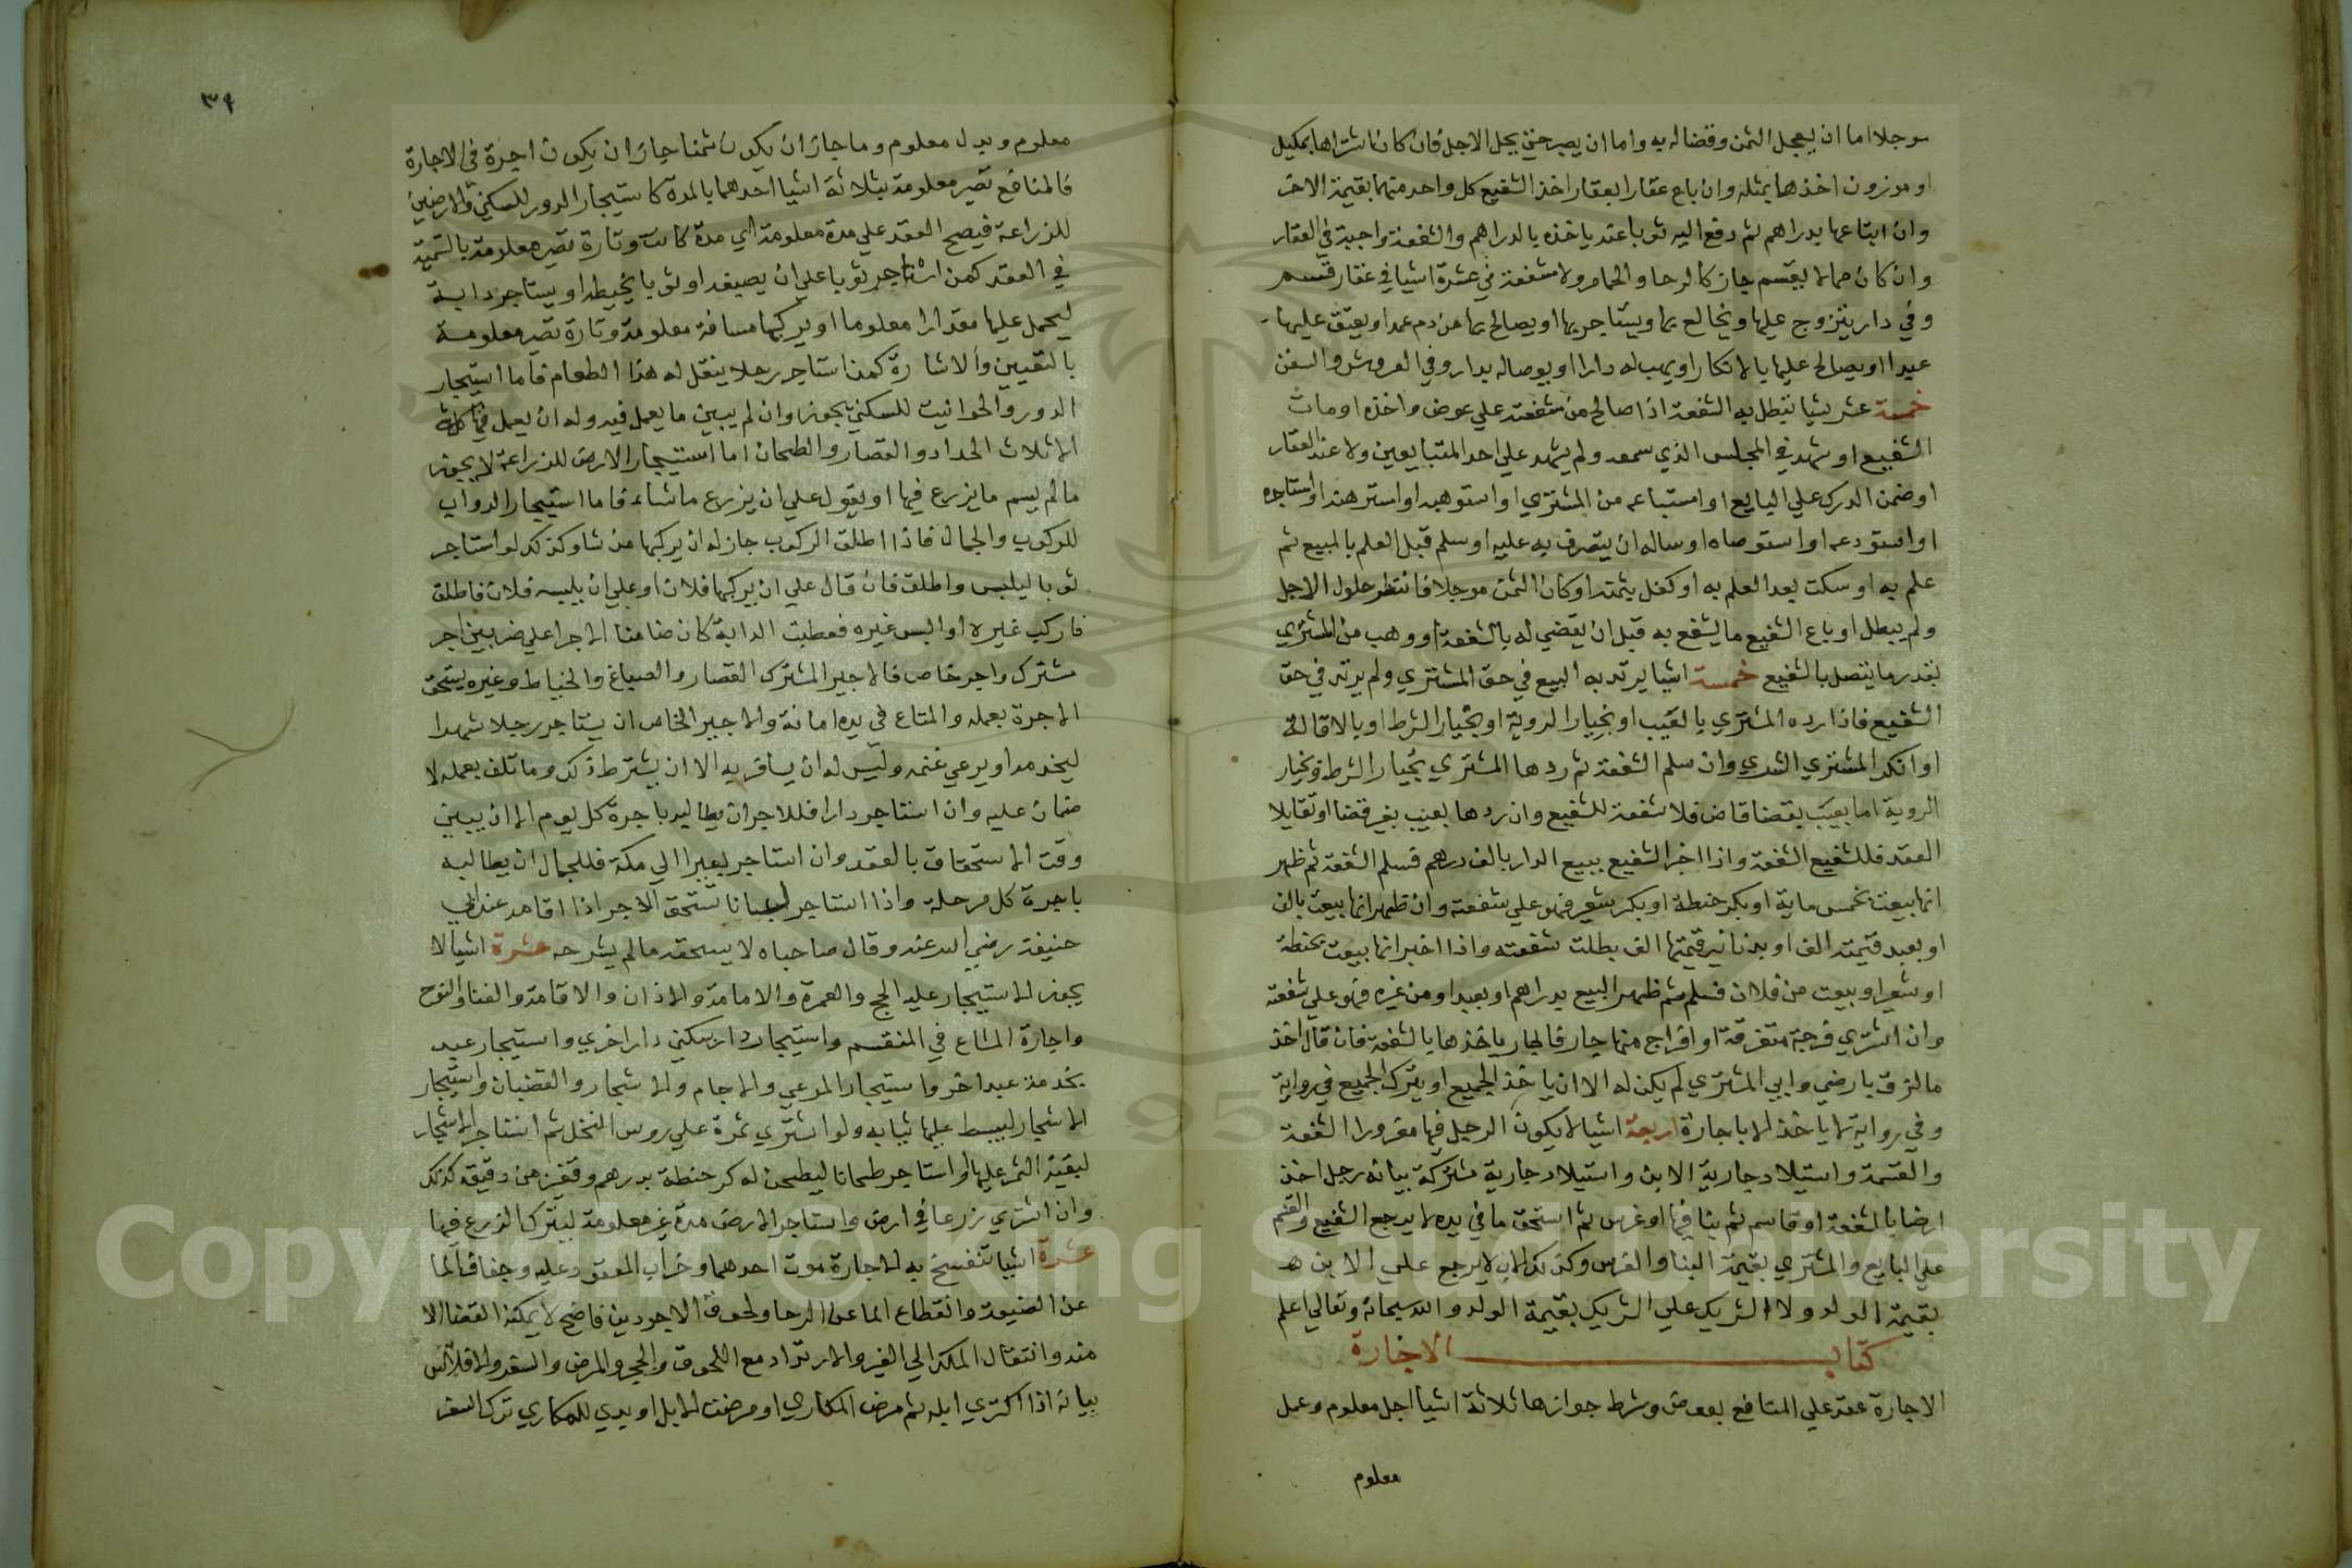 موجلا اما ان يعجل الثمن وقضا له به واما ان يصبر حتي يحل الاجل فان كان اشتراها بمكيل
او موزون اخذها بمثله وان باع عقارا بعقار اخذ الشفيع كل واحد منهما بقيمة الاخر
وان ابتاعها بدراهم ثم دفع اليه ثوبا عنه ياخذه بالدراهم والشفعة واجبة في العقار
وان كان مما لا يقسم جاز كالرحا والحمام ولا شفعة في عشرة اشيا في عقار قسم
وفي دار يتزوج عليها ويخالع بها ويستاجر بها او يصالح بها من دم عمد او يعتق عليها
عبدا او يصالح عليها بالانكار او يهب له دارا او يوصا له بدار وفي العروض والسفن
خمسة عشر شيا تبطل به الشفعة اذا صالح من شفعته علي عوض واخذه او مات
الشفيع او شهد في المجلس الذي سمعه ولم يشهد علي احد المتبايعين ولا عند العقار
او ضمن الدرك علي البايع او استباعه من المشتري او استوهبه او استرهنه او استاجره
او استودعه او استوصاه او ساله ان يتصرف به عليه او سلم قبل العلم بالمبيع ثم
علم به او سكت بعد العلم به او كفل بثمنه او كان الثمن موجلا فانتظر حلول الاجل
ولم يبطل او باع الشفيع ما يشفع به قبل ان يقضي له بالشفعة او وهب من المشتري
بقدر ما يتصل بالشفيع خمسة اشيا يرتد به البيع في حق المشتري ولم يرتد في حق
الشفيع فاذا رده المشتري بالعيب او بخيار الروية او بخيار الشرط او بالاقالة
او انكر المشتري الشري وان سلم الشفعة ثم ردها المشتري بخيار الشرط وبخيار
الروية اما بعيب بقضا قاض فلا شفعة للشفيع وان ردها بعيب بغير قضا او تقايلا
العقد فللشفيع الشفعة واذا اخبر الشفيع ببيع الدار بالف درهم فسلم الشفعة ثم ظهر
انها بيعت بخمس ماية او بكر حنطة او بكر شعير فهو علي شفعته وان ظهر انها بيعت بالف
او بعبد قيمته الف او بدنانير قيمتها الف بطلت شفعته واذا اخبر انها بيعت بحنطة
او شعير او بيعت من فلان فسلم ثم ظهر البيع بدراهم او بعبد او من غيره فهو علي شفعته
وان اشتري قرحة متفرقة او اقراح منها جار فالجار ياخذها بالشفعة فان قال اخذ
ما لزق بارضي وابي المشتري لم يكن له الا ان ياخذ الجميع او يترك الجميع في رواية
وفي رواية لا ياخذ الا باجارة اربعة اشيا لا يكون الرجل فيها مغرورا الشفعة
والقسمة واستيلاد جارية الابن واستيلاد جارية مشتركة بيانه رجل اخذ
ارضا بالشفعة او قاسم ثم بنا فيها او غرس ثم استحق ما في يده لا يرجع الشفيع والقسم
علي البايع والمشتري بقيمة البنا والغرس وكذلك الاب لا يرجع علي الابن
بقيمة الولد ولا الشريك علي الشريك بقيمة الولد والله سبحانه وتعالي اعلم
كتاب الاجارة
الاجارة عقد علي المنافع بعوض وشرط جوازها ثلاثة اشيا اجل معلوم وعمل
معلوم
٣٩
معلوم وبدل معلوم وما جاز ان يكون ثمنا جاز ان يكون اجرة في الاجارة
فالمنافع تصير معلومة بثلاثة اشيا احدهما بالمدة كاستيجار الدور للسكني والارضين
للزراعة فيصح العقد علي مدة معلومة اي مدة كانت وتارة تصير معلومة بالتسمية
في العقد كمن استاجر ثوبا علي ان يصبغه او ثوبا يخيطه او يستاجر دابة
ليحمل عليها مقدارا معلوما او يركبها مسافة معلومة وتارة تصير معلومة
بالتعيين والاشارة كمن استاجر رجلا ينقل له هذا الطعام فاما استيجار
الدور والحوانيت للسكني يجوز وان لم يبين ما يعمل فيه وله ان يعمل فيها كل شي
الا ثلاث الحداد والقصار والطحان اما استيجار الارض للزراعة لا يجوز
ما لم يسم ما يزرع فيها او يقول علي ان يزرع ما شاء فاما استيجار الدواب
للركوب والجمال فاذا اطلق الركوب جاز له ان يركبها من شا وكذلك لو استاجر
ثوبا ليلبس واطلق فان قال علي ان يركبها فلان او علي ان يلبسه فلان فاطلق
فاركب غيره او البس غيره فعطبت الدابة كان ضامنا الاجرا علي ضربين اجر
مشترك واجر خاص فالاجير المشترك القصار والصباغ والخياط وغيره يستحق
الاجرة بعمله والمتاع في يده امانة والاجير الخاص ان يستاجر رجلا شهرا
ليخدمه او يرعي غنمه وليس له ان يسافر به الا ان يشترط ذلك وما تلف بعمله لا
ضمان عليه وان استاجر دارا فللاجر ان يطالبه باجرة كل يوم الا ان يبين
وقت الاستحقاق بالعقد وان استاجر بعيرا الي مكة فللجمال ان يطالبه
باجرة كل مرحلة واذا استاجر لبانا تستحق الاجر اذا اقامه عند ابي
حنيفة رضي الله عنه وقال صاحباه لا يستحقه ما لم يشرجه عشرة اشيا لا
يجوز الاستيجار عليه الحج والعمرة والامامة والاذان والاقامة والغنا والنوح
واجارة المشاع في المنقسم واستيجار دار بسكني دار اخري واستيجار عبد
بخدمة عبد اخر واستيجار المرعي والاجام والاشجار والقضبان واستيجار
الاشجار ليبسط عليها ثيابه ولو اشتري ثمرة علي روس النخل ثم استاجر الاشجار
لبقية الثمر عليها او استاجر طحانا ليطحن له كر حنطة بدرهم وقفيز من دقيقه كذلك
وان اشتري زرعا في ارض واستاجر الارض مدة غير معلومة ليترك الزرع فيها
عشرة اشيا تنفسخ به الاجارة موت احدهما وخراب المعقود عليه وجفاف الما
عن الضيعة وانقطاع الما عن الرحا ولحوق الاجر دين فاضح لا يمكنه القضا الا
منه وانتقال الملك الي الغير والارتداد مع اللحوق والحجر والمرض والسفر والافلاس
بيانه اذا اكتري ابله ثم مرض المكاري او مرضت الابل او بدي للمكاري ترك السفر